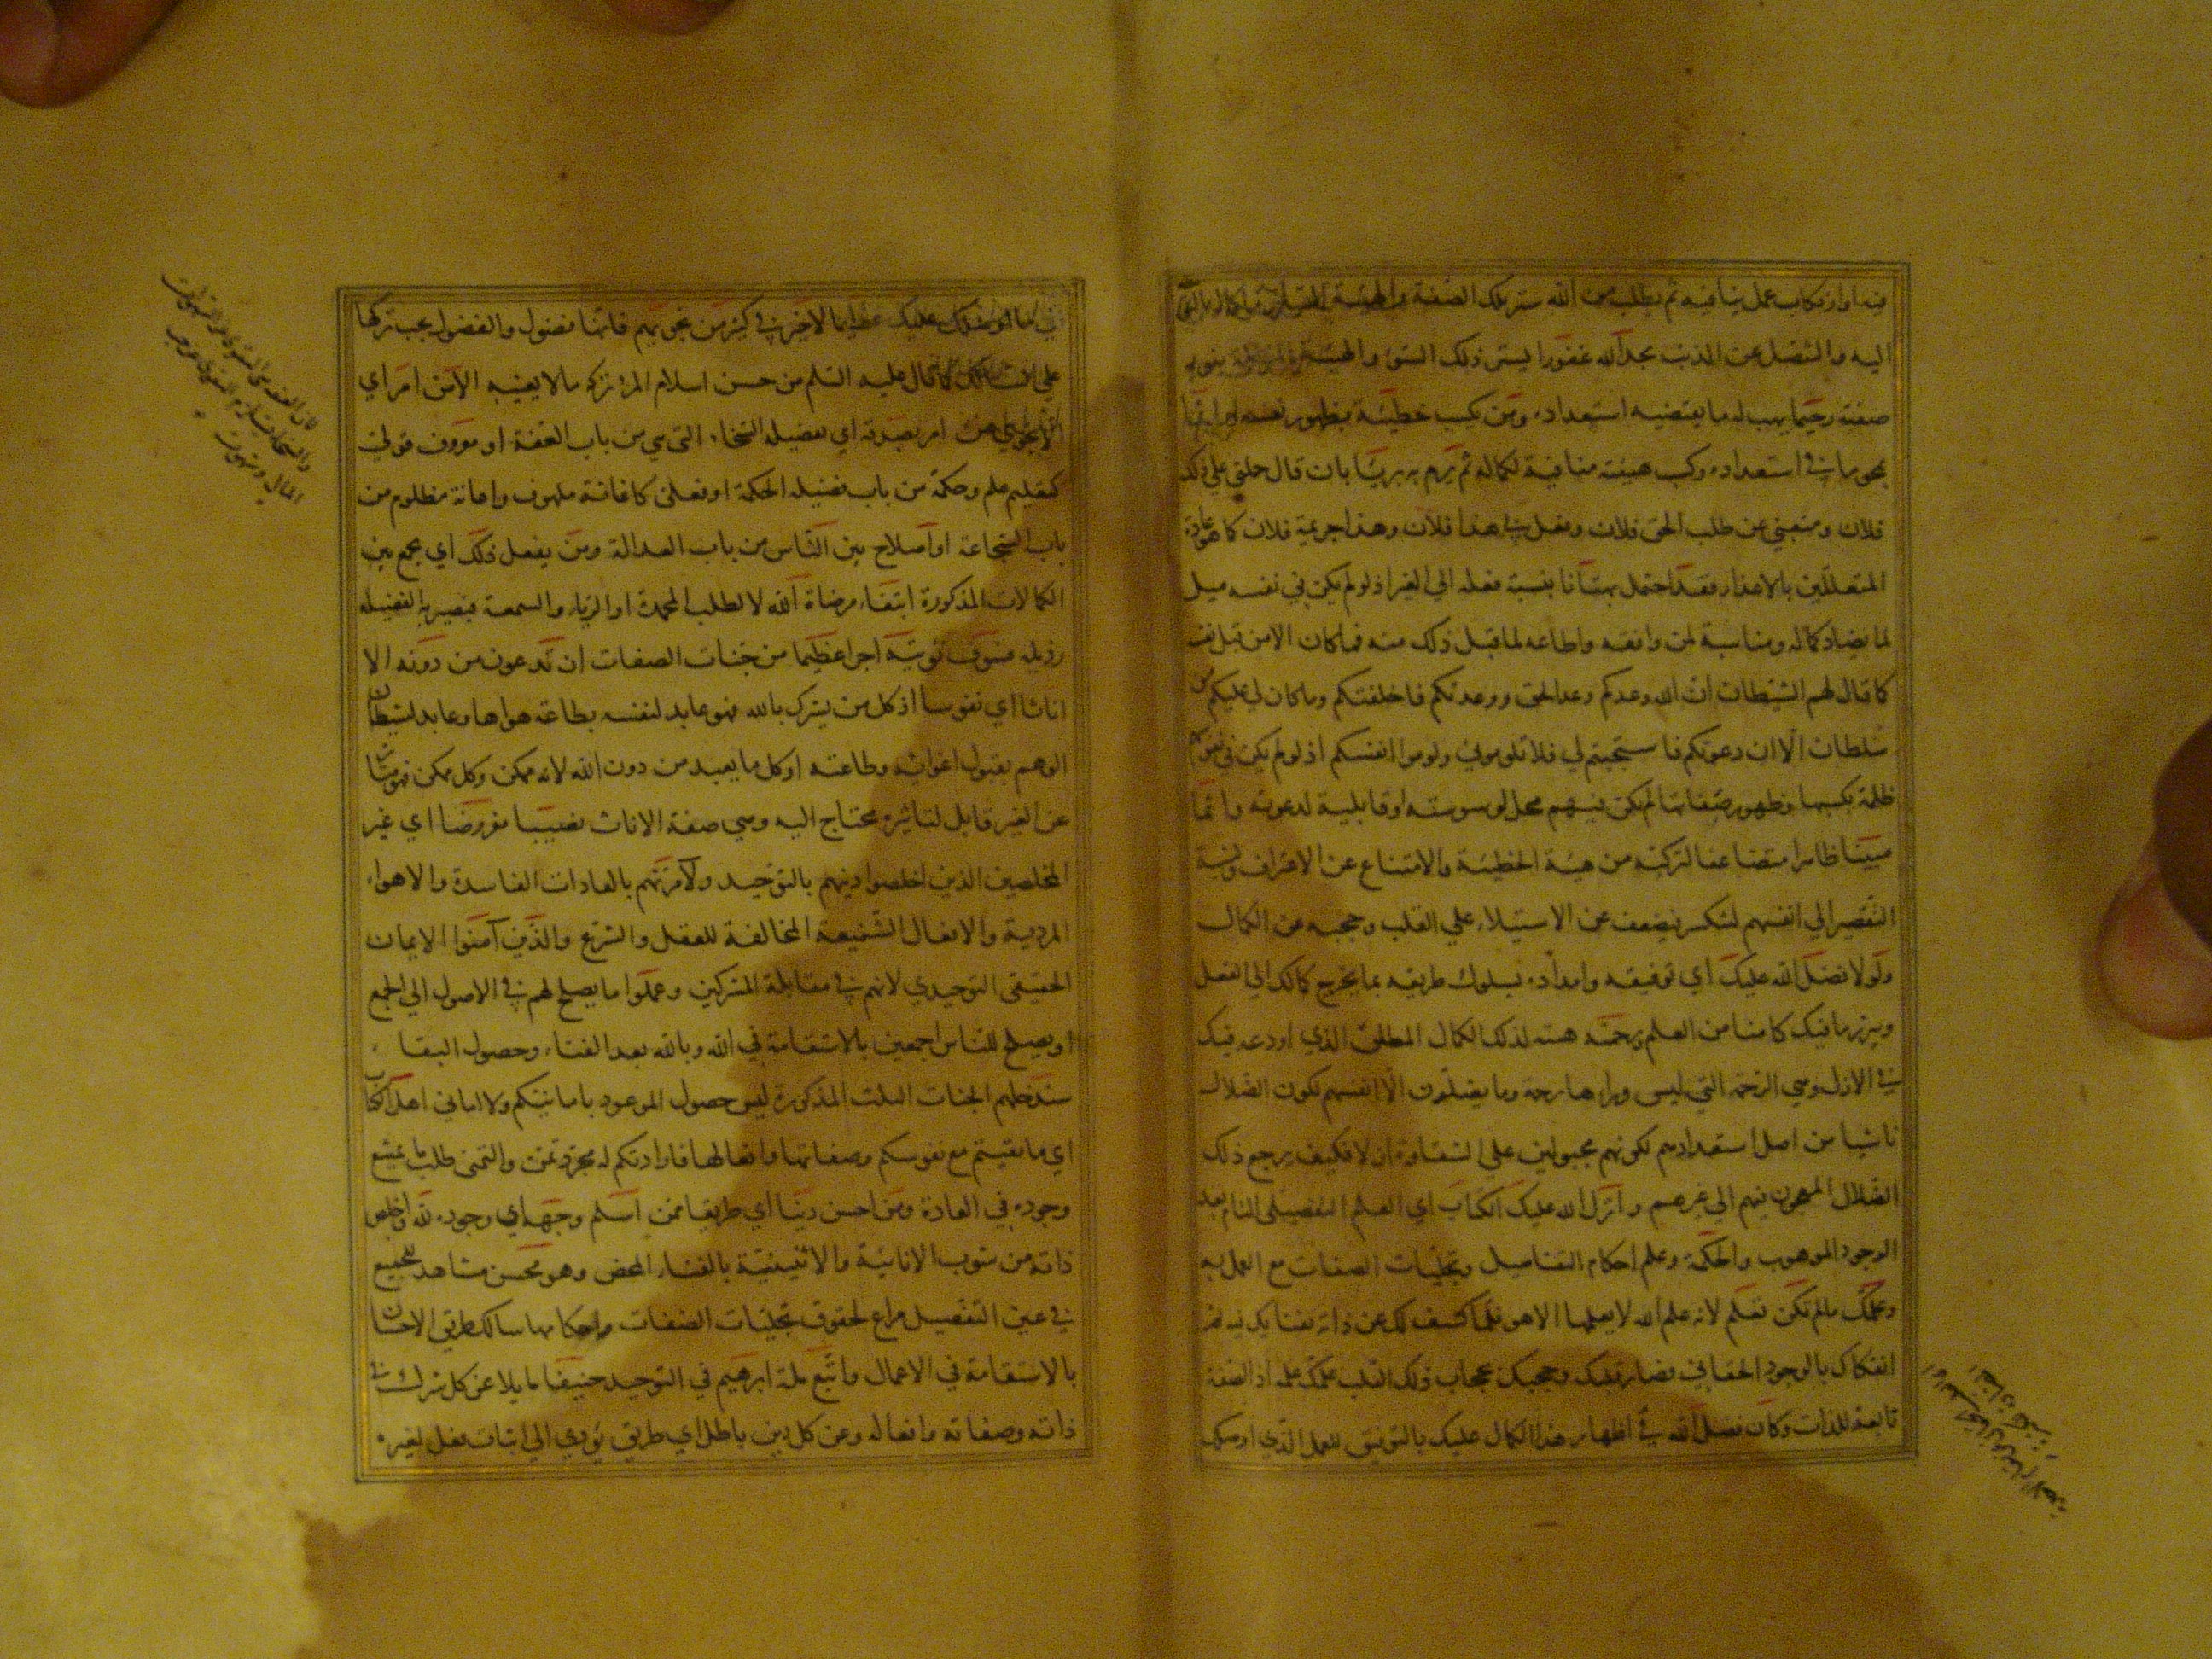 فيه او ارتكاب عمل ينافيه ثم يطلب من الله ستر تلك الصفة والهيئة
اليه والتنصل عن الذنب يجد الله غفورا ليستر ذلك السوء والهيئة
صفته رحيما يهب له ما يقتضيه استعداده ومن يكسب خطيئة بظهور نفسه
يمحو ما في استعداده وكسب هيئة منافية لكماله ثم يرم به بريئا بان قال حملني على ذلك
فلان ومنعني عن طلب الحق فلان وفعل في هذا فلان وهذا جريمة فلان كما هو عادة
المتعللين بالاعذار فقد احتمل بهتانا بنسبة فعله الي الغير اذ لو لم يكن في نفسه ميل
لما يضاد كماله ومناسبة لمن وافقه واطاعه لما قبل ذلك منه فما كان الا من قبل نفسه
كما قال لهم الشيطان ان الله وعدكم وعد الحق ووعدتكم فاخلفتكم وما كان لي عليكم من
سلطان الا ان دعوتكم فاستجبتم لي فلا تلوموني ولوموا انفسكم اذ لو لم يكن في نفوسهم
ظلمة بكسبها وظهور صفاتها لم يكن فيهم محل لوسوسته او قابلية لدعوته واثما
مبينا ظاهرا متضاعفا لتركبه من هيئة الخطيئة والامتناع عن الاعتراف ونسبة
التقصير الي انفسهم لتنكسر فيضعف عن الاستيلاء علي القلب وحجبه عن الكمال
ولولا فضل الله عليك اي توفيقه وامداده بسلوك طريقه بما يخرج كمالك الي الفعل
ويبرز ما فيك كامنا من العلم ورحمته هبته لذلك الكمال المطلق الذي اودعه فيك
في الازل وهي الرحمة التي ليس وراءها رحمة وما يضلون الا انفسهم لكون الضلال
ناشيا من اصل استعدادهم لكونهم مجبولين علي الشقاوة ازلا فكيف يرجع ذلك
الضلال المعجون فيهم الي غيرهم وانزل الله عليك الكتاب اي العلم التفصيلي التام بعد
الوجود الموهوب والحكمة وعلم احكام التفاصيل وتجليات الصفات مع العمل به
وعلمك ما لم تكن تعلم لانه علم الله لا يعلمها الا هو فلما كشف لك عن ذاته بفنائك فيه ثم
بالوجود الحقاني فصار قلبك وحجبك بحجاب ذلك القلب علمك علمه اذ الصفة
تابعة للذات وكان فضل الله في اظهار هذا الكمال عليك بالتوفيق للعمل الذي اوصلك
عليك عظيما لا خير في كثير من نجويهم فانها فضول والفضول يجب تركها
علي السالك كما قال عليه السلم من حسن اسلام المرء تركه ما لا يعنيه الا من امر اي
الا نجوي من امر بصدقة اي بفضيلة السخاء التي هي من باب العفة او معروف قولي
كتعليم علم وحكمة من باب فضيلة الحكمة او فعلي كاغاثة ملهوف واعانة مظلوم من
باب الشجاعة او اصلاح بين الناس من باب العدالة ومن يفعل ذلك اي يجمع بين
الكمالات المذكورة ابتغاء مرضاة الله لا لطلب المحمدة او الرياء والسمعة فيصير به الفضيلة
رذيلة فسوف نؤتيه اجرا عظيما من جنات الصفات ان تدعون من دونه الا
اناثا اي نفوسا اذ كل من يشرك بالله فهو عابد لنفسه بطاعة هواها وعابد لشيطان
الوهم بقبول اغوائه وطاعته او كل ما يعبد من دون الله لانه ممكن وكل ممكن فهو متاثر
عن الغير قابل لتاثيره محتاج اليه وهي صفة الاناث نصيبا مفروضا اي غير
المخلصين الذين اخلصوا دينهم بالتوحيد ولآمرنهم بالعادات الفاسدة والاهواء
المردية والافعال الشنيعة المخالفة للعقل والشرع والذين آمنوا الايمان
الحقيقي التوحيدي لانهم في مقابلة المشركين وعملوا ما يصلح لهم في الاصول الي الجمع
او يصلح للناس اجمعين بالاستقامة في الله وبالله بعد الفناء وحصول البقاء
سندخلهم الجنات الثلث المذكورة ليس حصول الموعود بامانيكم ولا اماني اهل الكتاب
اي ما بقيتم مع نفوسكم وصفاتها وافعالها فارادتكم له مجرد تمن والتمني طلب ما يمتنع
وجوده في العادة ومن احسن دينا اي طريقا ممن اسلم وجهه اي وجوده لله واخلص
ذاته من شوب الانائية والاثنينية بالفناء المحض وهو محسن مشاهد للجميع
في عين التفصيل مراع لحقوق تجليات الصفات واحكامها سالك طريق الاحسان
بالاستقامة في الاعمال واتبع ملة ابرهيم في التوحيد حنيفا مايلا عن كل شرك في
ذاته وصفاته وافعاله وعن كل دين باطل اي طريق يؤدي الي اثبات فعل لغيره